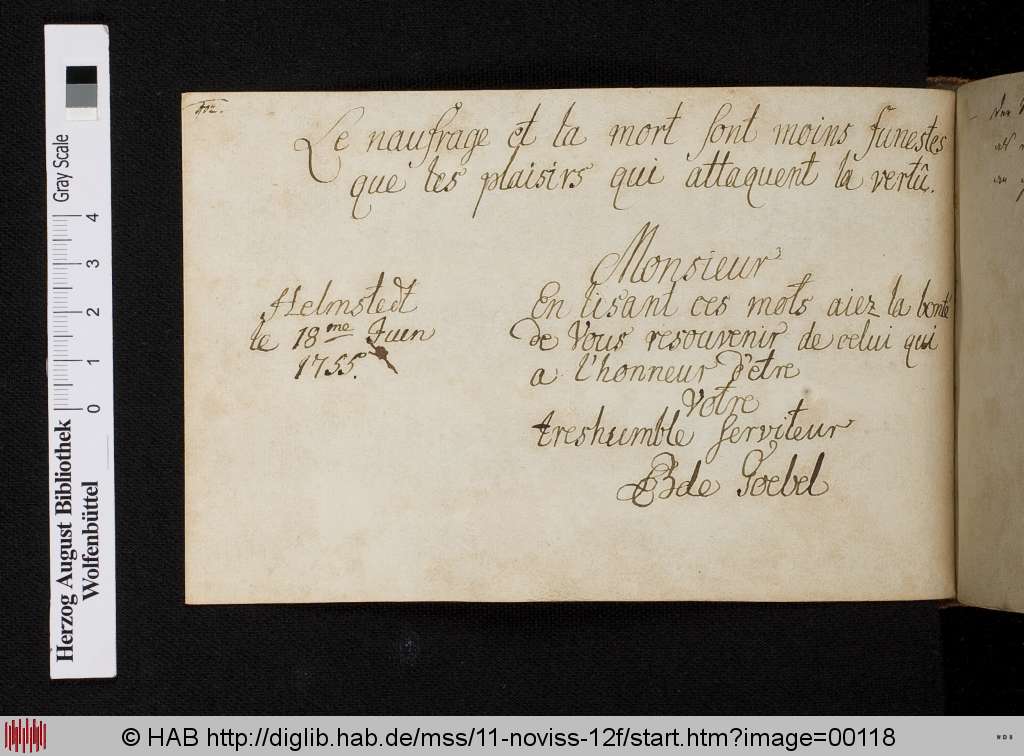 Le naufrage et la mort sont moins funestes
que les plaisirs qui attaquent la vertû.
Monsieur
En lisant ces mots aiez la bonté
de Vous resouvenir de celui qui
a l'honneur d'être
Votre
treshumble serviteur
de Goebel
Helmstedt
le 18me Juin
1755.
Herzog August Bibliothek
Wolfenbüttel
Gray Scale
0 1 2 3 4
© HAB http://diglib.hab.de/mss/11-noviss-12f/start.htm?image=00118